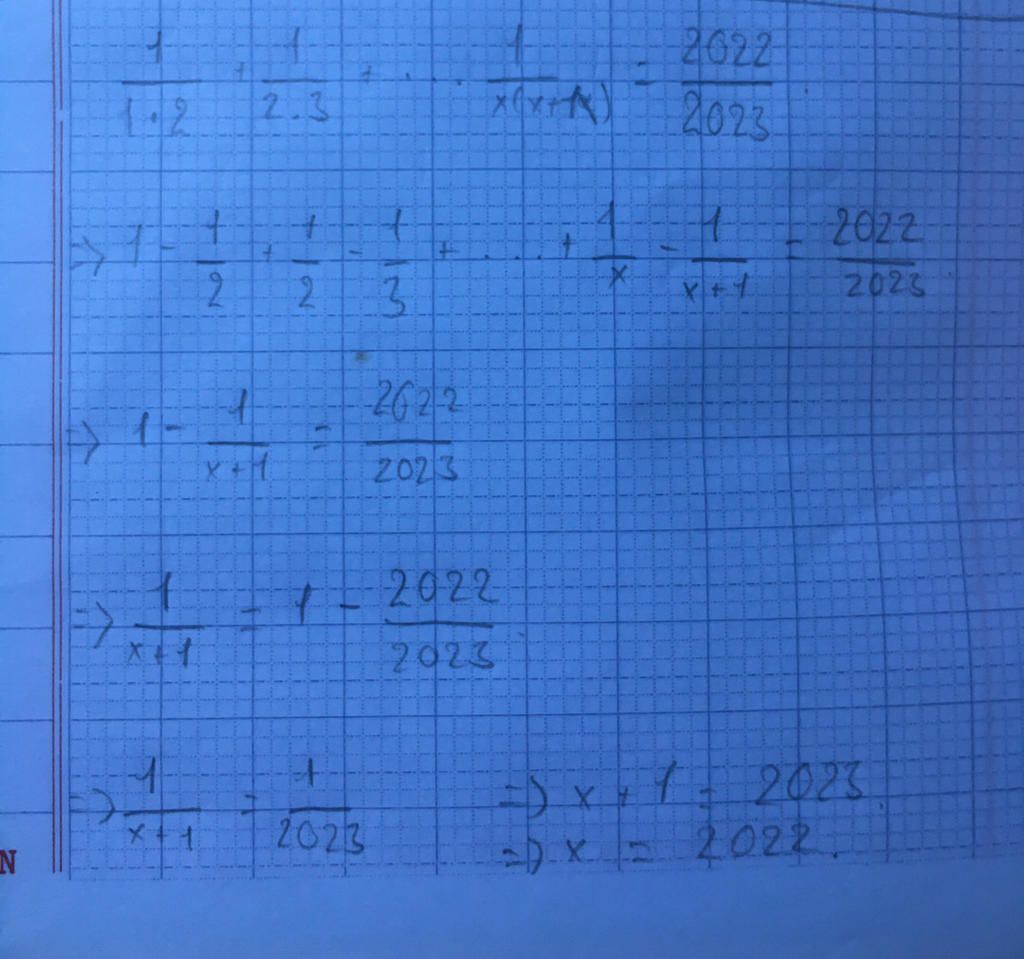 1/1.2 + 1/2.3 + .... 1/x(x+1) = 2022/2023.
=> 1 - 1/2 + 1/2 - 1/3 + ..... + 1/x - 1/x+1 = 2022/2023.
=> 1 - 1/x+1 = 2022/2023
=> 1/x+1 = 1 - 2022/2023.
=> 1/x+1 = 1/2023 => x + 1 = 2023.
=> x = 2022.
N